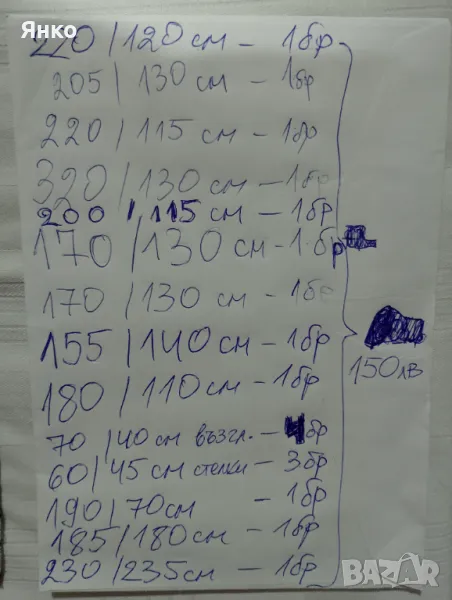 Янко
220/120 см – 1бр
205/130 см – 1бр
220/115 см – 1бр
320/130 см – 1бр
200/115 см – 1бр
170/130 см – 1бр
170/130 см – 1бр
155/140 см – 1бр
180/110 см – 1бр
150лв
70/40 см възгл. – 4бр
60/45 см стелки – 3бр
190/70 см – 1бр
185/180 см – 1бр
230/235 см – 1бр
BAZAR